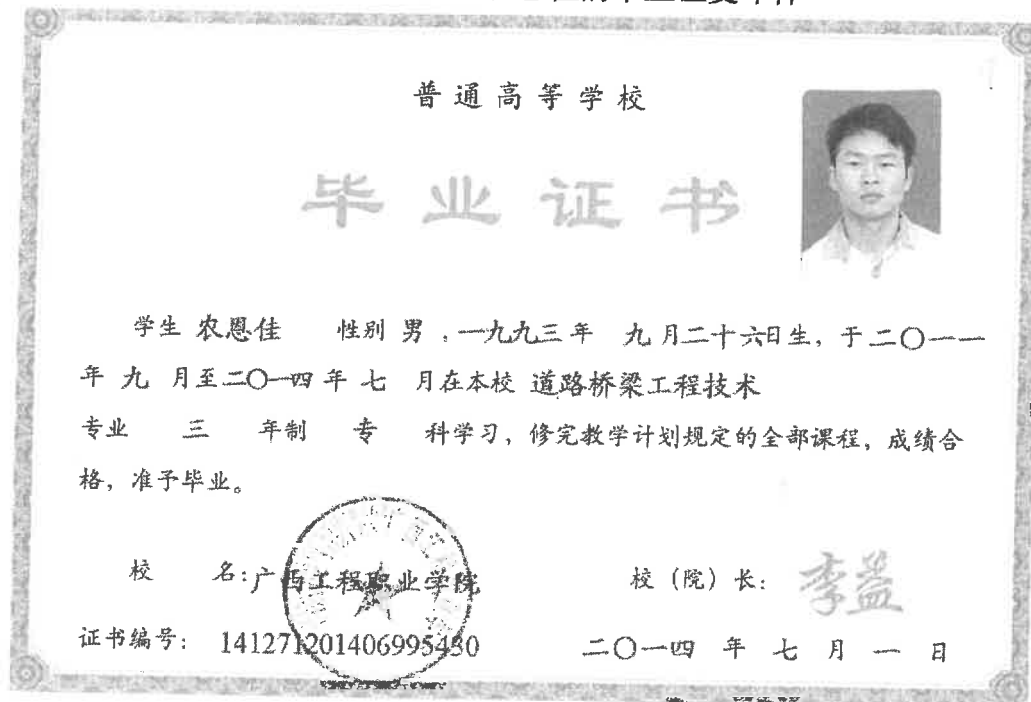 普通高等学校
毕业证书
学生 农恩佳 性别 男 ，一九九三年 九月二十六日生，于二〇一一
年 九 月至二〇一四年 七 月在本校 道路桥梁工程技术
专业 三 年制 专 科学习，修完教学计划规定的全部课程，成绩合
格，准予毕业。
校 名：广西工程职业学院
校（院）长：李益
证书编号： 141271201406995430
二〇一四 年 七 月 一 日